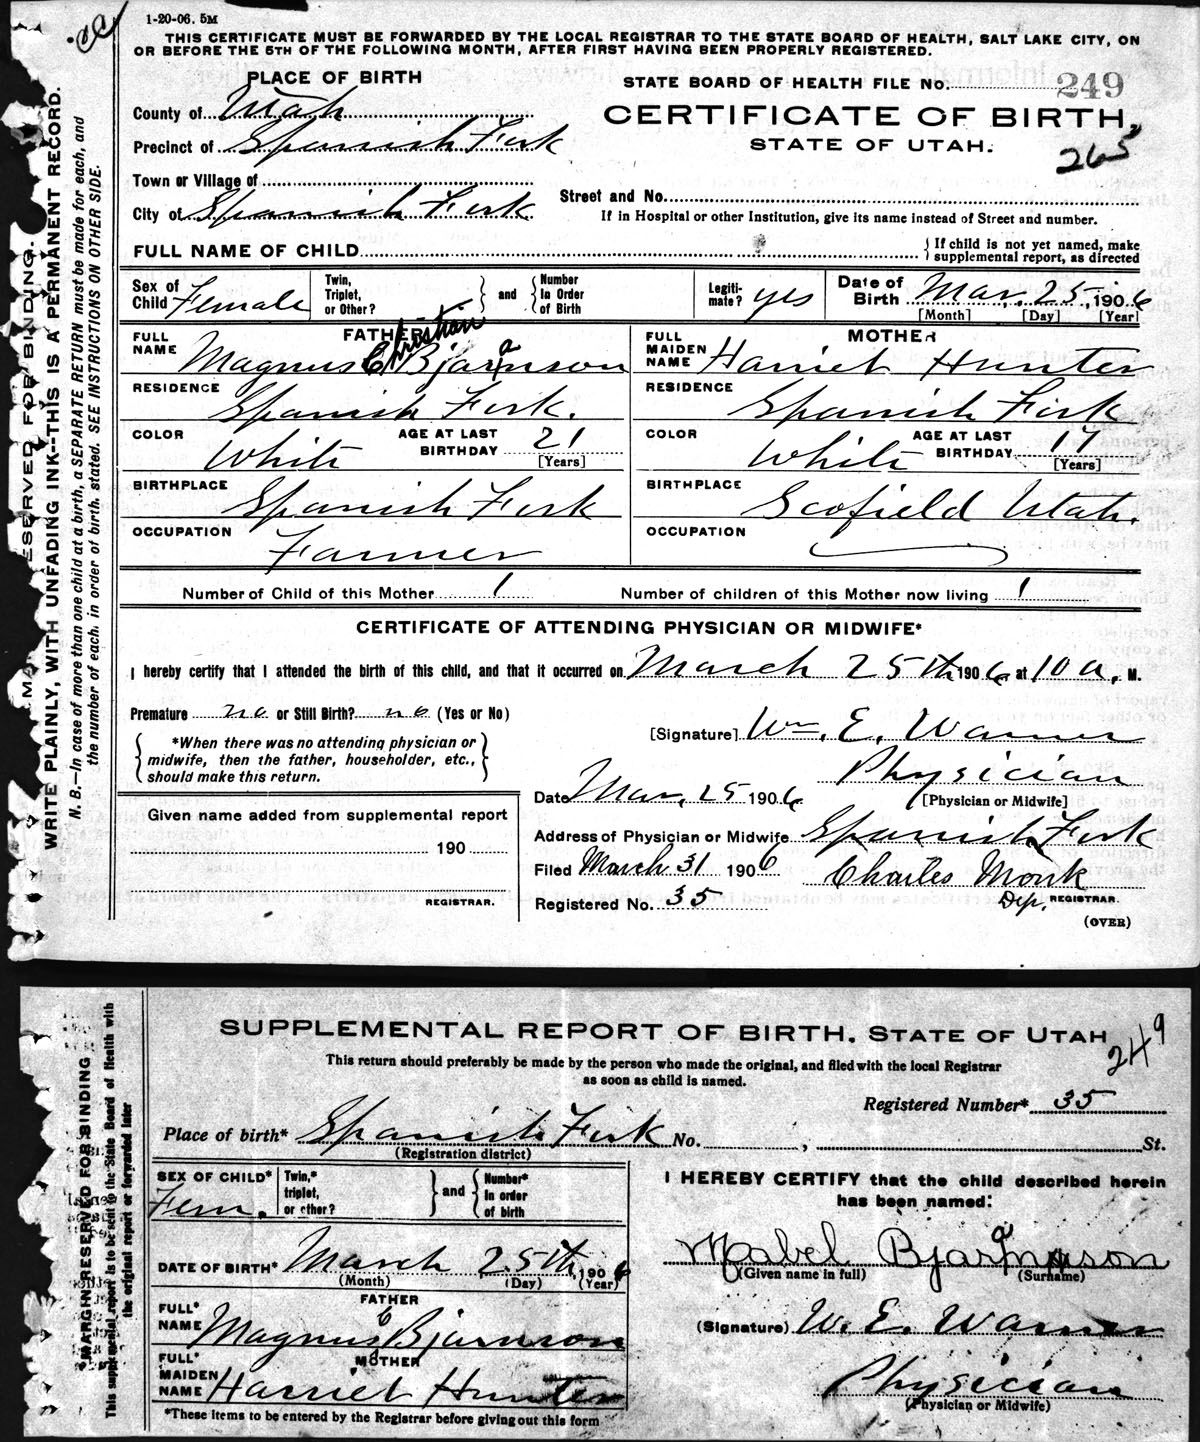 1-20-06. 5M
THIS CERTIFICATE MUST BE FORWARDED BY THE LOCAL REGISTRAR TO THE STATE BOARD OF HEALTH, SALT LAKE CITY, ON
OR BEFORE THE 5TH OF THE FOLLOWING MONTH, AFTER FIRST HAVING BEEN PROPERLY REGISTERED.
PLACE OF BIRTH
County of Utah
Precinct of Spanish Fork
Town or Village of
City of Spanish Fork
STATE BOARD OF HEALTH FILE No. 249
CERTIFICATE OF BIRTH,
STATE OF UTAH.
265
Street and No.
If in Hospital or other Institution, give its name instead of Street and number.
FULL NAME OF CHILD
If child is not yet named, make
supplemental report, as directed
Sex of Child Female
Twin, Triplet, or Other?
and
Number In Order of Birth
Legiti-mate? yes
Date of Birth Mar. 25, 1906
[Month] [Day] [Year]
FATHER
FULL NAME Magnus Christian Bjarnason
RESIDENCE Spanish Fork.
COLOR White
AGE AT LAST BIRTHDAY 21
[Years]
BIRTHPLACE Spanish Fork
OCCUPATION Farmer
MOTHER
FULL MAIDEN NAME Harriet Hunter
RESIDENCE Spanish Fork
COLOR White
AGE AT LAST BIRTHDAY 17
[Years]
BIRTHPLACE Scofield Utah.
OCCUPATION
Number of Child of this Mother 1
Number of children of this Mother now living 1
CERTIFICATE OF ATTENDING PHYSICIAN OR MIDWIFE*
I hereby certify that I attended the birth of this child, and that it occurred on March 25th 1906 at 10 a. M.
Premature no or Still Birth? no (Yes or No)
*When there was no attending physician or
midwife, then the father, householder, etc.,
should make this return.
[Signature] Wm. E. Warner
Physician
[Physician or Midwife]
Date Mar, 25 1906
Address of Physician or Midwife Spanish Fork
Filed March 31 1906
Charles Monk
Dep. REGISTRAR.
Registered No. 35
(OVER)
Given name added from supplemental report
190
REGISTRAR.
WRITE PLAINLY, WITH UNFADING INK--THIS IS A PERMANENT RECORD.
N. B.—In case of more than one child at a birth, a SEPARATE RETURN must be made for each, and
the number of each, in order of birth, stated. SEE INSTRUCTIONS ON OTHER SIDE.
ESERVED FOR BINDING.
SUPPLEMENTAL REPORT OF BIRTH, STATE OF UTAH
249
This return should preferably be made by the person who made the original, and filed with the local Registrar
as soon as child is named.
Registered Number* 35
Place of birth* Spanish Fork No. , St.
(Registration district)
SEX OF CHILD* Fem.
Twin,* triplet, or other?
and
Number* In order of birth
DATE OF BIRTH* March 25th, 1906
(Month) (Day) (Year)
FATHER
FULL* NAME Magnus C Bjarnson
MOTHER
FULL* MAIDEN NAME Harriet Hunter
*These items to be entered by the Registrar before giving out this form
I HEREBY CERTIFY that the child described herein
has been named:
Mabel Bjarnason
(Given name in full) (Surname)
(Signature) W. E. Warner
Physician
(Physician or Midwife)
*MARGIN RESERVED FOR BINDING
This supplemental report is to be sent to the State Board of Health with
the original report or forwarded later